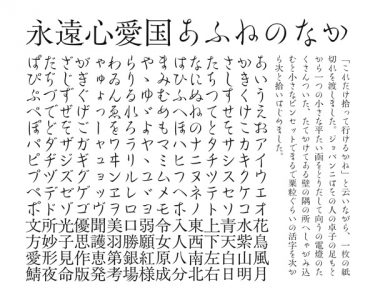 永遠心愛国あふねのなか
「これだけ拾って行けるかね」と云いながら、一枚の紙
切れを渡しました。ジョバンニはその人の卓子の足もと
から一つの小さな平たい函をとりだして向うの電燈のた
くさんついた、たてかけてある壁の隅の所へしゃがみ込
むと小さなピンセットでまるで粟粒ぐらいの活字を次か
ら次と拾いはじめました。
あいうえおアイウエオ花鳥風月
かきくけこカキクケコ水紫山明
さしすせそサシスセソ青天白日
たちつてとタチツテト上下左右
なにぬねのナニヌネノ東西南北
はひふへほハヒフヘホ入八人分
まみむめもマミムメモ令女原成
やゆよヤユヨ弱願
らりるれろラリルレロ口勝銀
わゐんゑをワヰンヱヲ美羽第考
ゃゅょっャュョッ
がぎぐげごガギグゲゴ聞護恵版
ざじずぜぞザジズゼゾ優思作
だぢづでどダヂヅデド光子見命
ばびぶべぼバビブベボ所妙形夜
ぱぴぷぺぽパピプペポ文方愛鯖